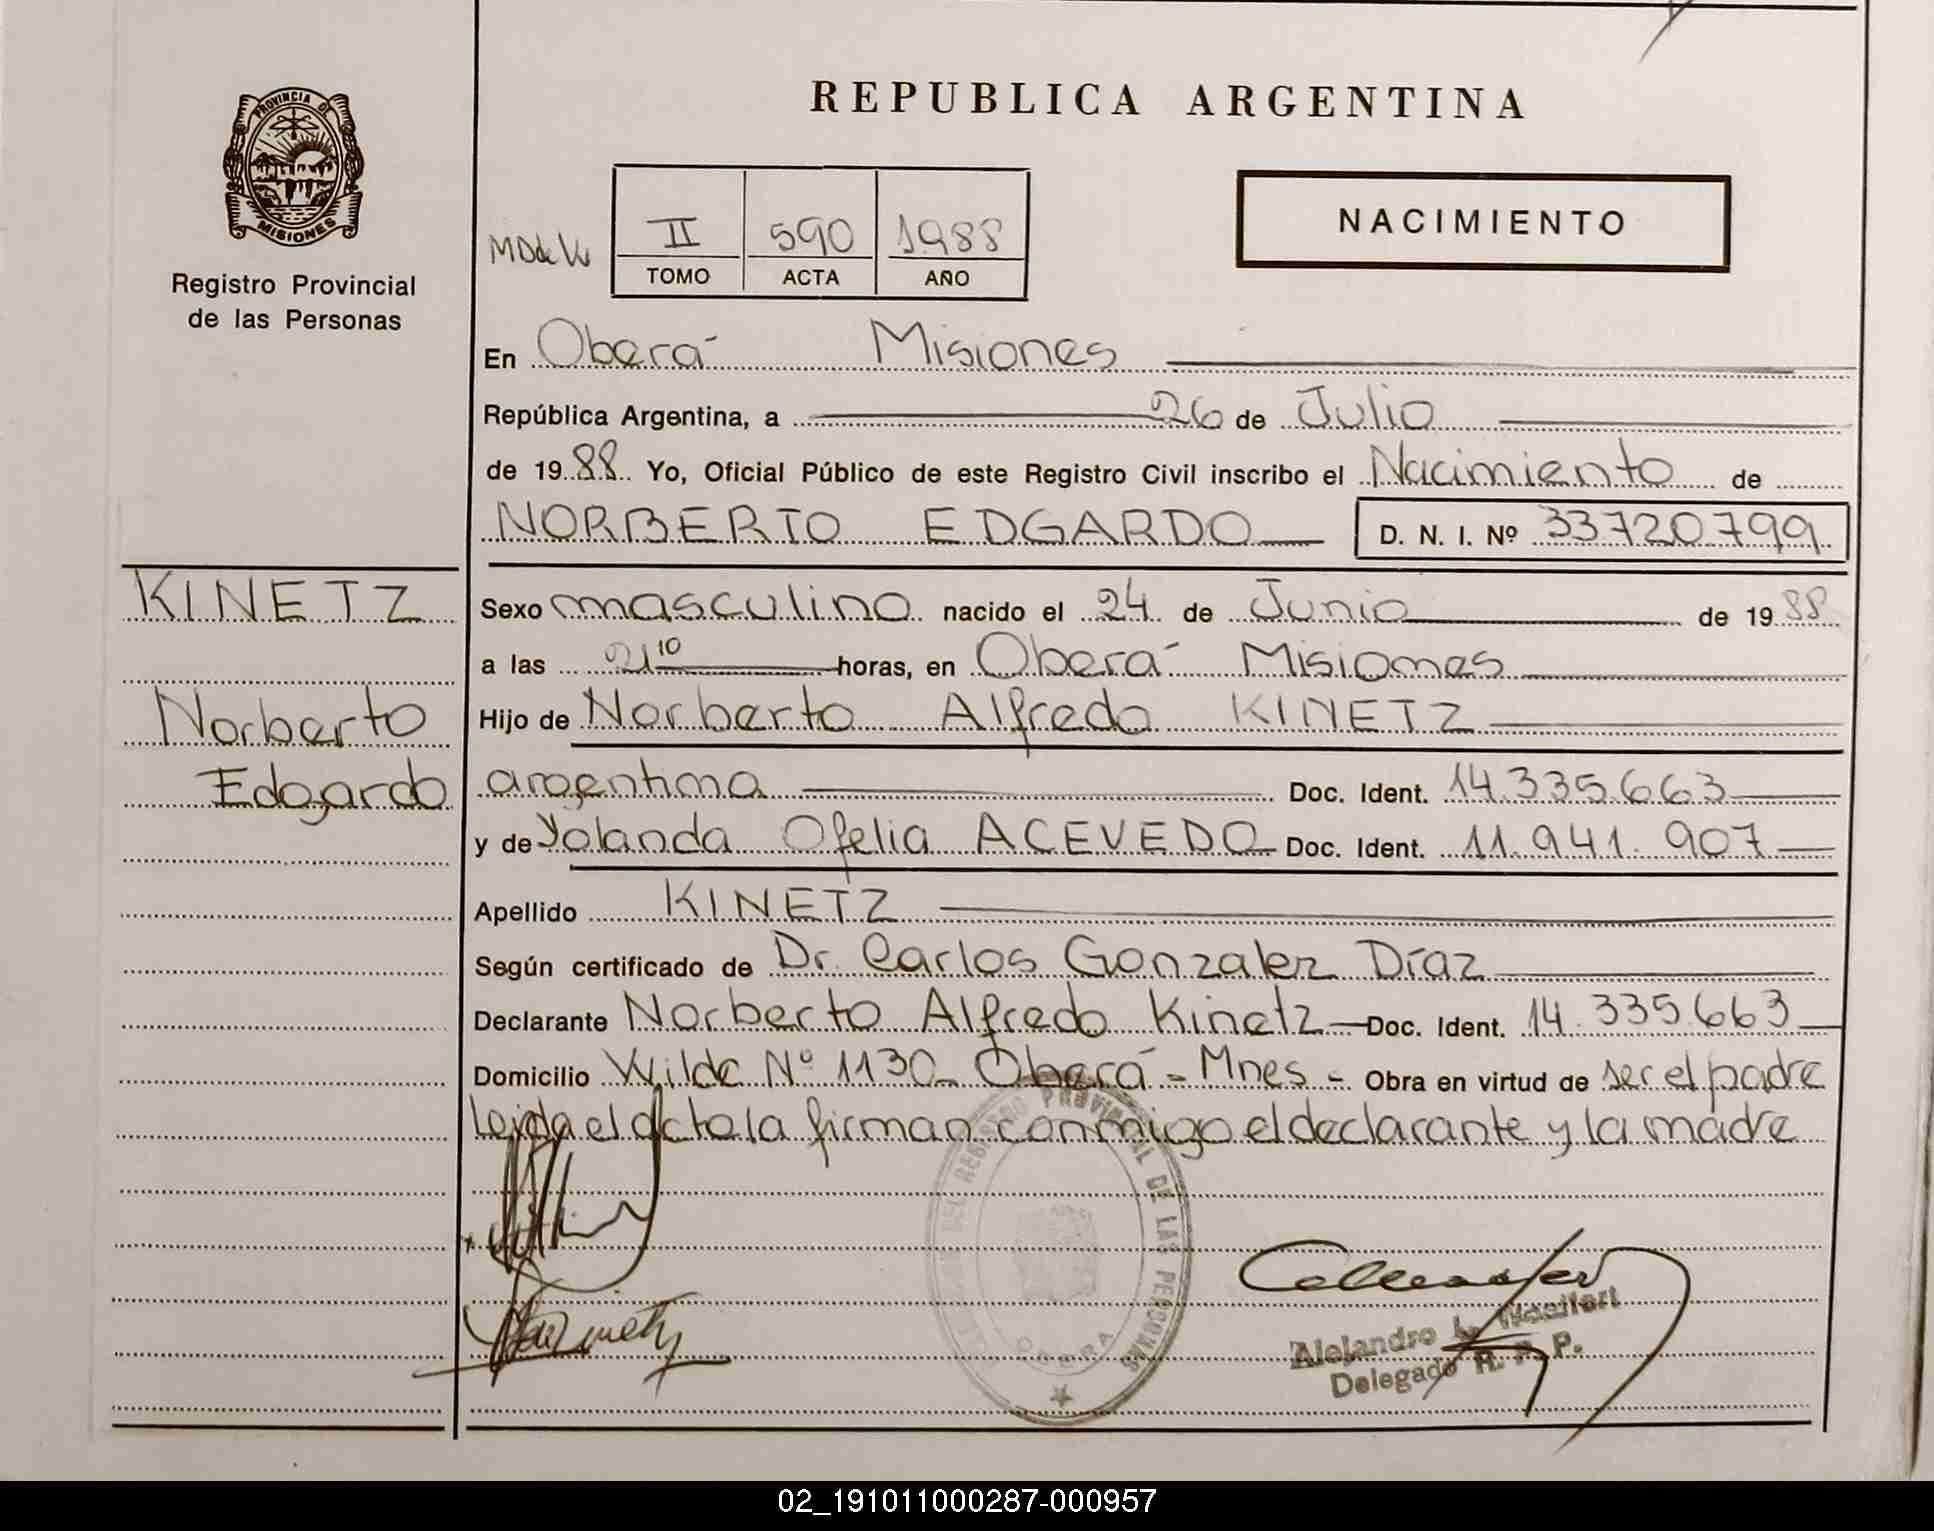 PROVINCIA DE
MISIONES
Registro Provincial
de las Personas
REPUBLICA ARGENTINA
II 590 1988
TOMO ACTA AÑO
NACIMIENTO
En Oberá Misiones
República Argentina, a 26 de Julio
de 1988 Yo, Oficial Público de este Registro Civil inscribo el Nacimiento de
NORBERTO EDGARDO D. N. I. Nº 33720799
KINETZ
Norberto
Edgardo
Sexo masculino nacido el 24 de Junio de 1988
a las 21 10 horas, en Oberá Misiones
Hijo de Norberto Alfredo KINETZ
argentina Doc. Ident. 14.335.663
y de Yolanda Ofelia ACEVEDO Doc. Ident. 11.941.907
Apellido KINETZ
Según certificado de Dr. Carlos Gonzalez Díaz
Declarante Norberto Alfredo Kinetz Doc. Ident. 14.335.663
Domicilio Wilde Nº 1130 - Oberá - Mnes - Obra en virtud de ser el padre
Leida el acta la firman conmigo el declarante y la madre
DEL REGISTRO PROVINCIAL DE LAS PERSONAS
OBERA
Alejandro L.
Delegado R. P. P.
02_191011000287-000957